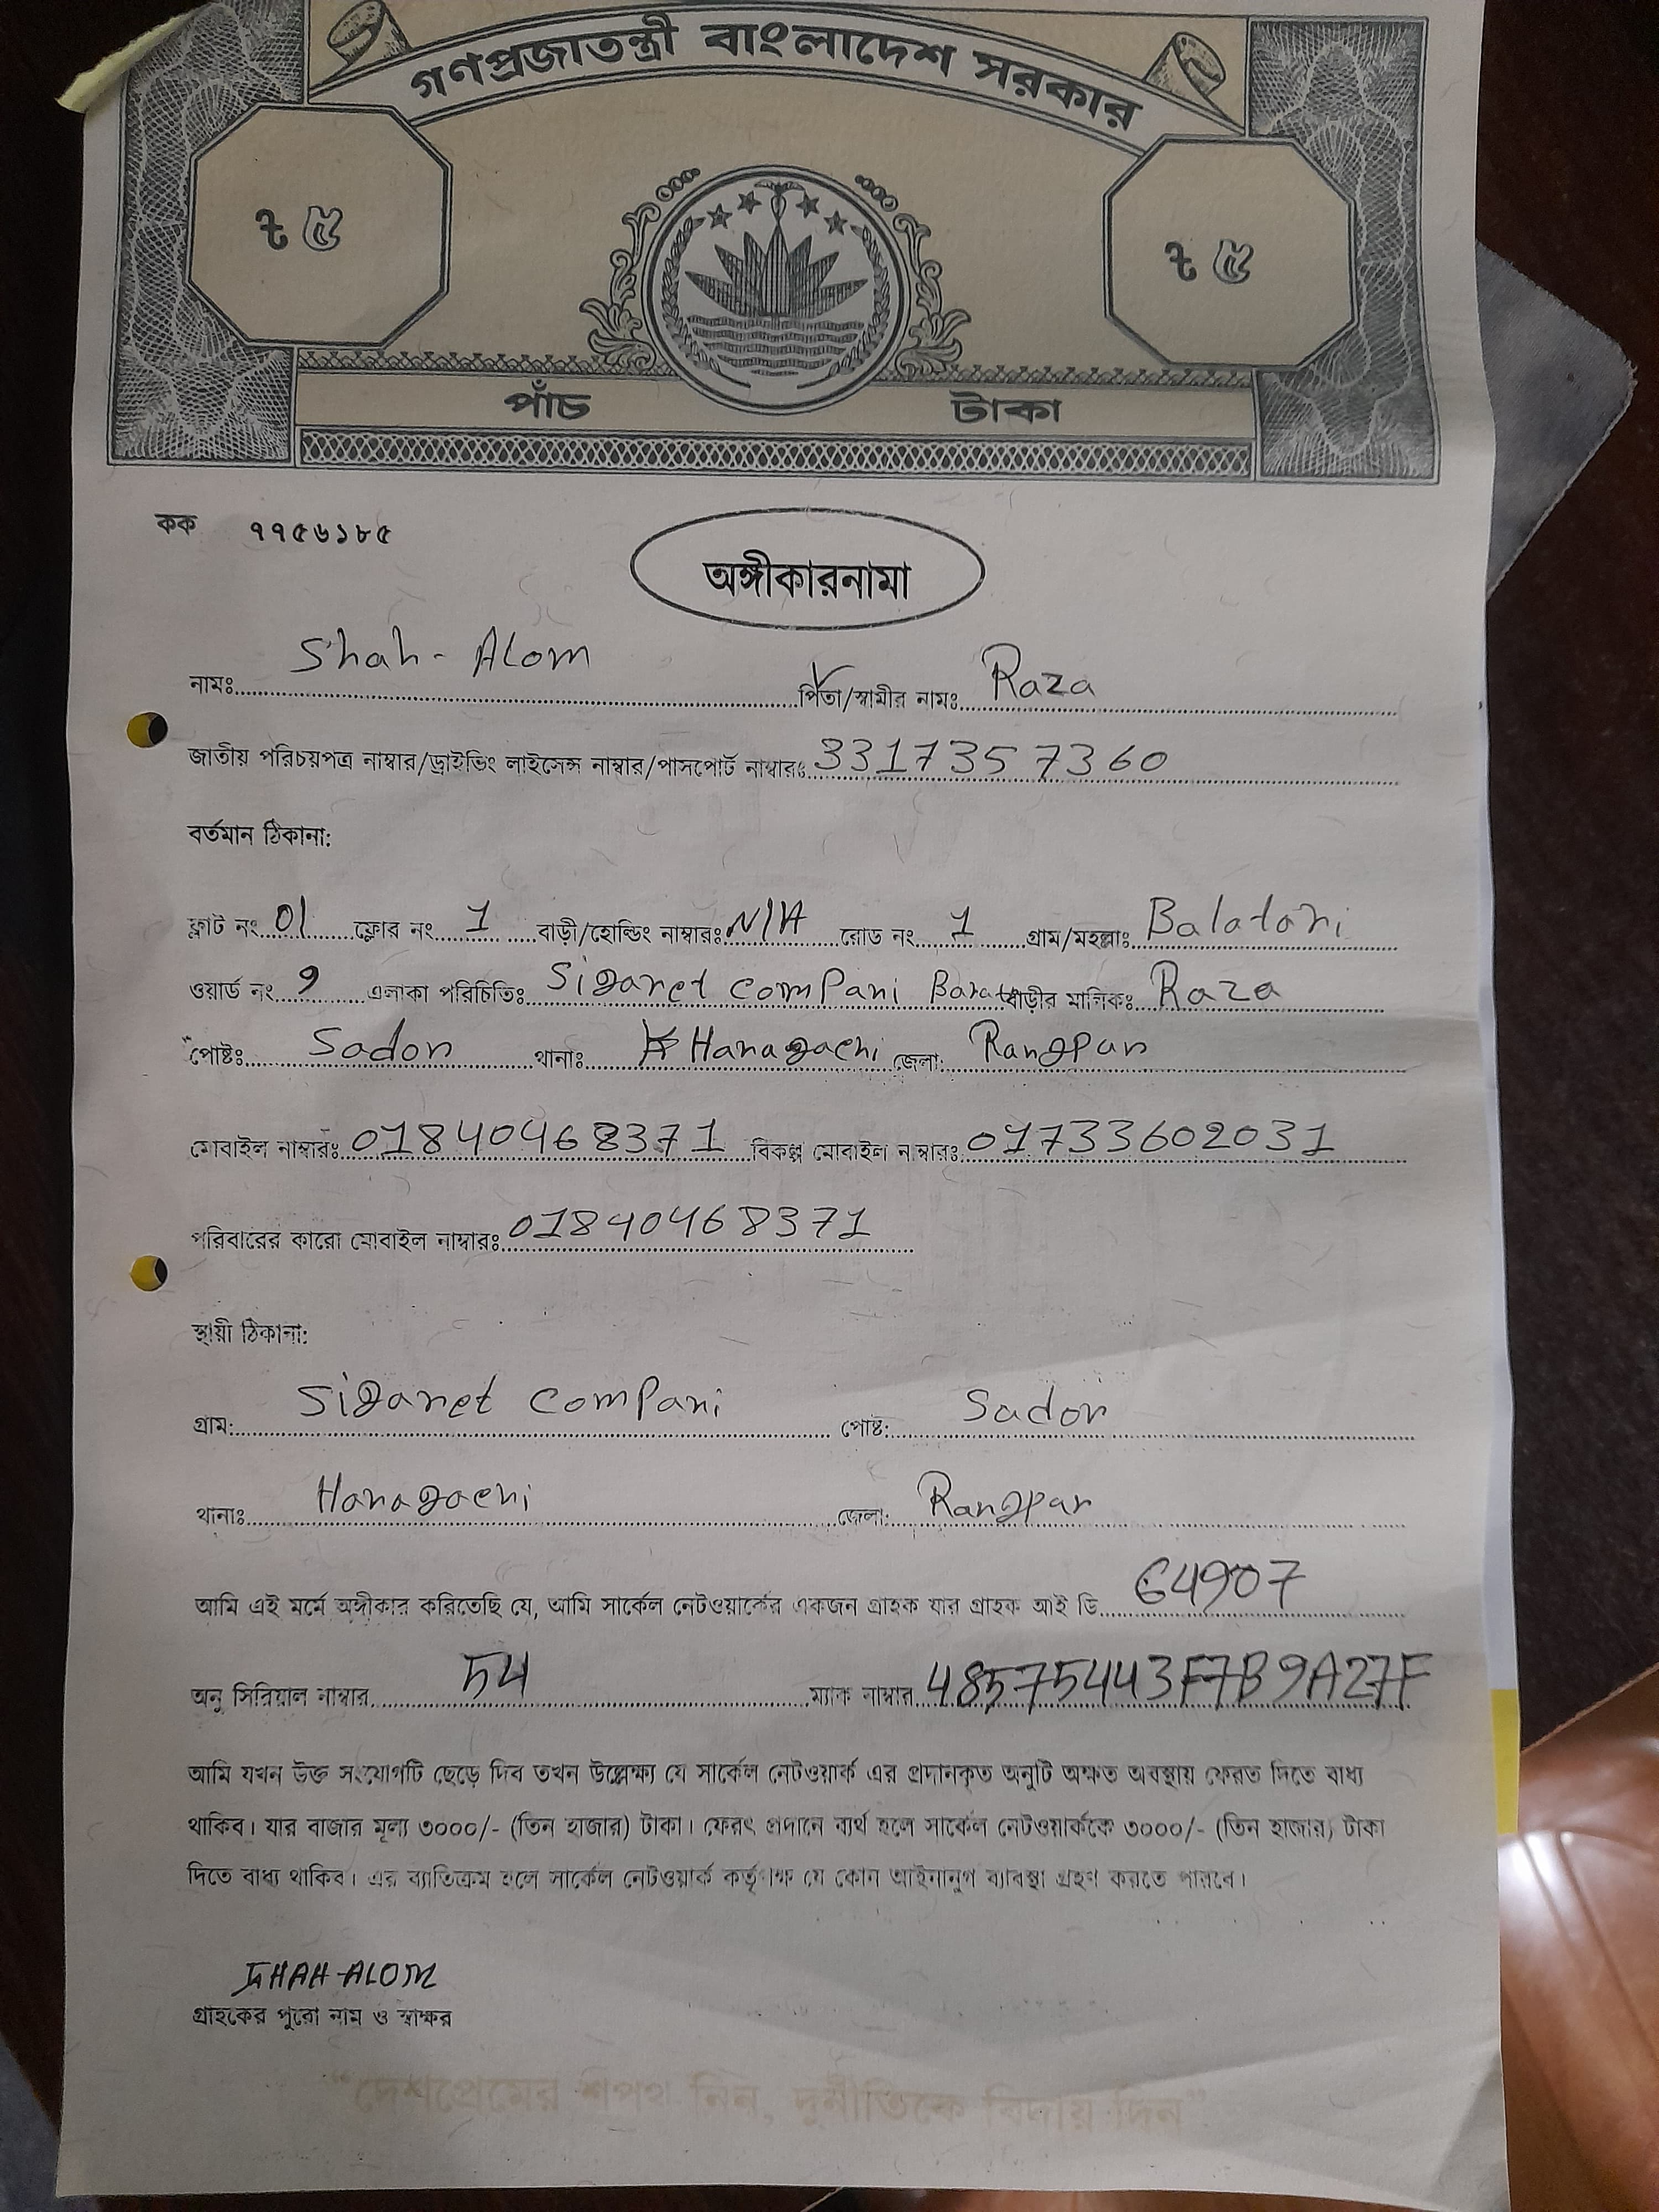 গণপ্রজাতন্ত্রী বাংলাদেশ সরকার
৳ ৫ ৳ ৫
পাঁচ টাকা
কক ৭৭৫৬১৮৫
অঙ্গীকারনামা
নামঃ Shah-Alom পিতা/স্বামীর নামঃ Raza
জাতীয় পরিচয়পত্র নাম্বার/ড্রাইভিং লাইসেন্স নাম্বার/পাসপোর্ট নাম্বারঃ 3317357360
বর্তমান ঠিকানা:
ফ্লাট নং 01 ফ্লোর নং 1 বাড়ী/হোল্ডিং নাম্বারঃ N/A রোড নং 1 গ্রাম/মহল্লাঃ Balatari
ওয়ার্ড নং 9 এলাকা পরিচিতিঃ Sigaret Compani বাড়ীর মালিকঃ Raza
পোষ্টঃ Sador থানাঃ Haragachi জেলা: Rangpur
মোবাইল নাম্বারঃ 01840468371 বিকল্প মোবাইল নাম্বারঃ 01733602031
পরিবারের কারো মোবাইল নাম্বারঃ 01840468371
স্থায়ী ঠিকানা:
গ্রাম: Sigaret Compani পোষ্ট: Sador
থানাঃ Haragachi জেলা: Rangpur
আমি এই মর্মে অঙ্গীকার করিতেছি যে, আমি সার্কেল নেটওয়ার্কের একজন গ্রাহক যার গ্রাহক আই ডি 64907
অনু সিরিয়াল নাম্বার 54 ম্যাক নাম্বার 485754443F7B9A27F
আমি যখন উক্ত সংযোগটি ছেড়ে দিব তখন উল্লেক্ষ্য যে সার্কেল নেটওয়ার্ক এর প্রদানকৃত অনুটি অক্ষত অবস্থায় ফেরত দিতে বাধ্য
থাকিব। যার বাজার মূল্য ৩০০০/- (তিন হাজার) টাকা। ফেরৎ প্রদানে ব্যর্থ হলে সার্কেল নেটওয়ার্ককে ৩০০০/- (তিন হাজার) টাকা
দিতে বাধ্য থাকিব। এর ব্যাতিক্রম হলে সার্কেল নেটওয়ার্ক কর্তৃপক্ষ যে কোন আইনানুগ ব্যাবস্থা গ্রহণ করতে পারবে।
SHAH-ALOM
গ্রাহকের পুরো নাম ও স্বাক্ষর
“দেশপ্রেমের শপথ নিন, দুর্নীতিকে বিদায় দিন”